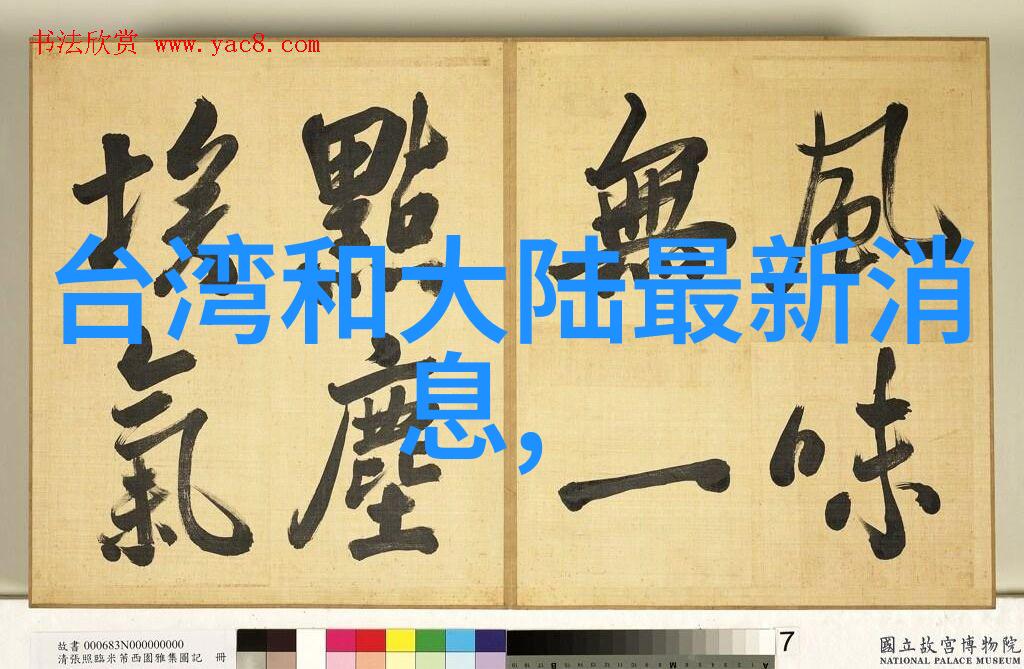 书法欣赏 www.yac8.com
風味
無一
點塵
埃氣
台湾和大陆最新消
息,
故書 000683N000000000
清張照臨米芾西園雅集圖記 冊
7
國立故宮博物院
NATIONAL PALACE MUSEUM